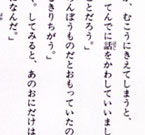 、むこうにきえてしまうと、
てんでに話をかわしていいまし
ことだろう。」
んぼうものだとおもっていたの
きりちがう。」
。してみると、あのおにだけは
なんだ。」